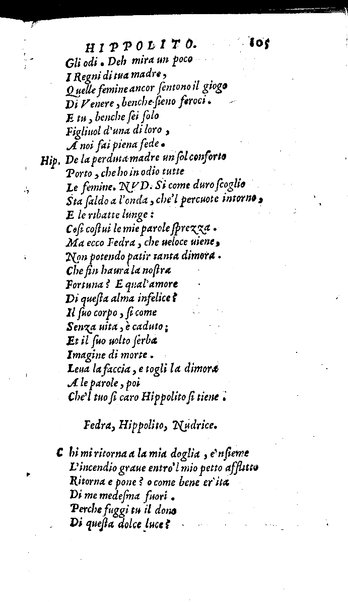 HIPPOLITO. 105
Gli odi. Deh mira un poco
I Regni di tua madre,
Quelle femine ancor sentono il giogo
Di Venere, benche sieno feroci.
E tu, benche sei solo
Figliuol d'una di loro,
A noi fai piena fede.
Hip. De la perduta madre un sol conforto
Porto, che ho in odio tutte
Le femine. NVD. Si come duro scoglio
Sta saldo a l'onda, che'l percuote intorno,
E le ribatte lunge:
Cosi costui le mie parole sprezza.
Ma ecco Fedra, che ueloce uiene,
Non potendo patir tanta dimora.
Che fin haura la nostra
Fortuna? E qual'amore
Di questa alma infelice?
Il suo corpo, si come
Senza uita, è caduto;
Et il suo uolto serba
Imagine di morte.
Leua la faccia, e togli la dimora
A le parole, poi
Che'l tuo si caro Hippolito si tiene.
Fedra, Hippolito, Nudrice.
C hi mi ritorna a la mia doglia, e'nsieme
L'incendio graue entro'l mio petto afflitto
Ritorna e pone? o come bene er'ita
Di me medesma fuori.
Perche fuggi tu il dono
Di questa dolce luce?